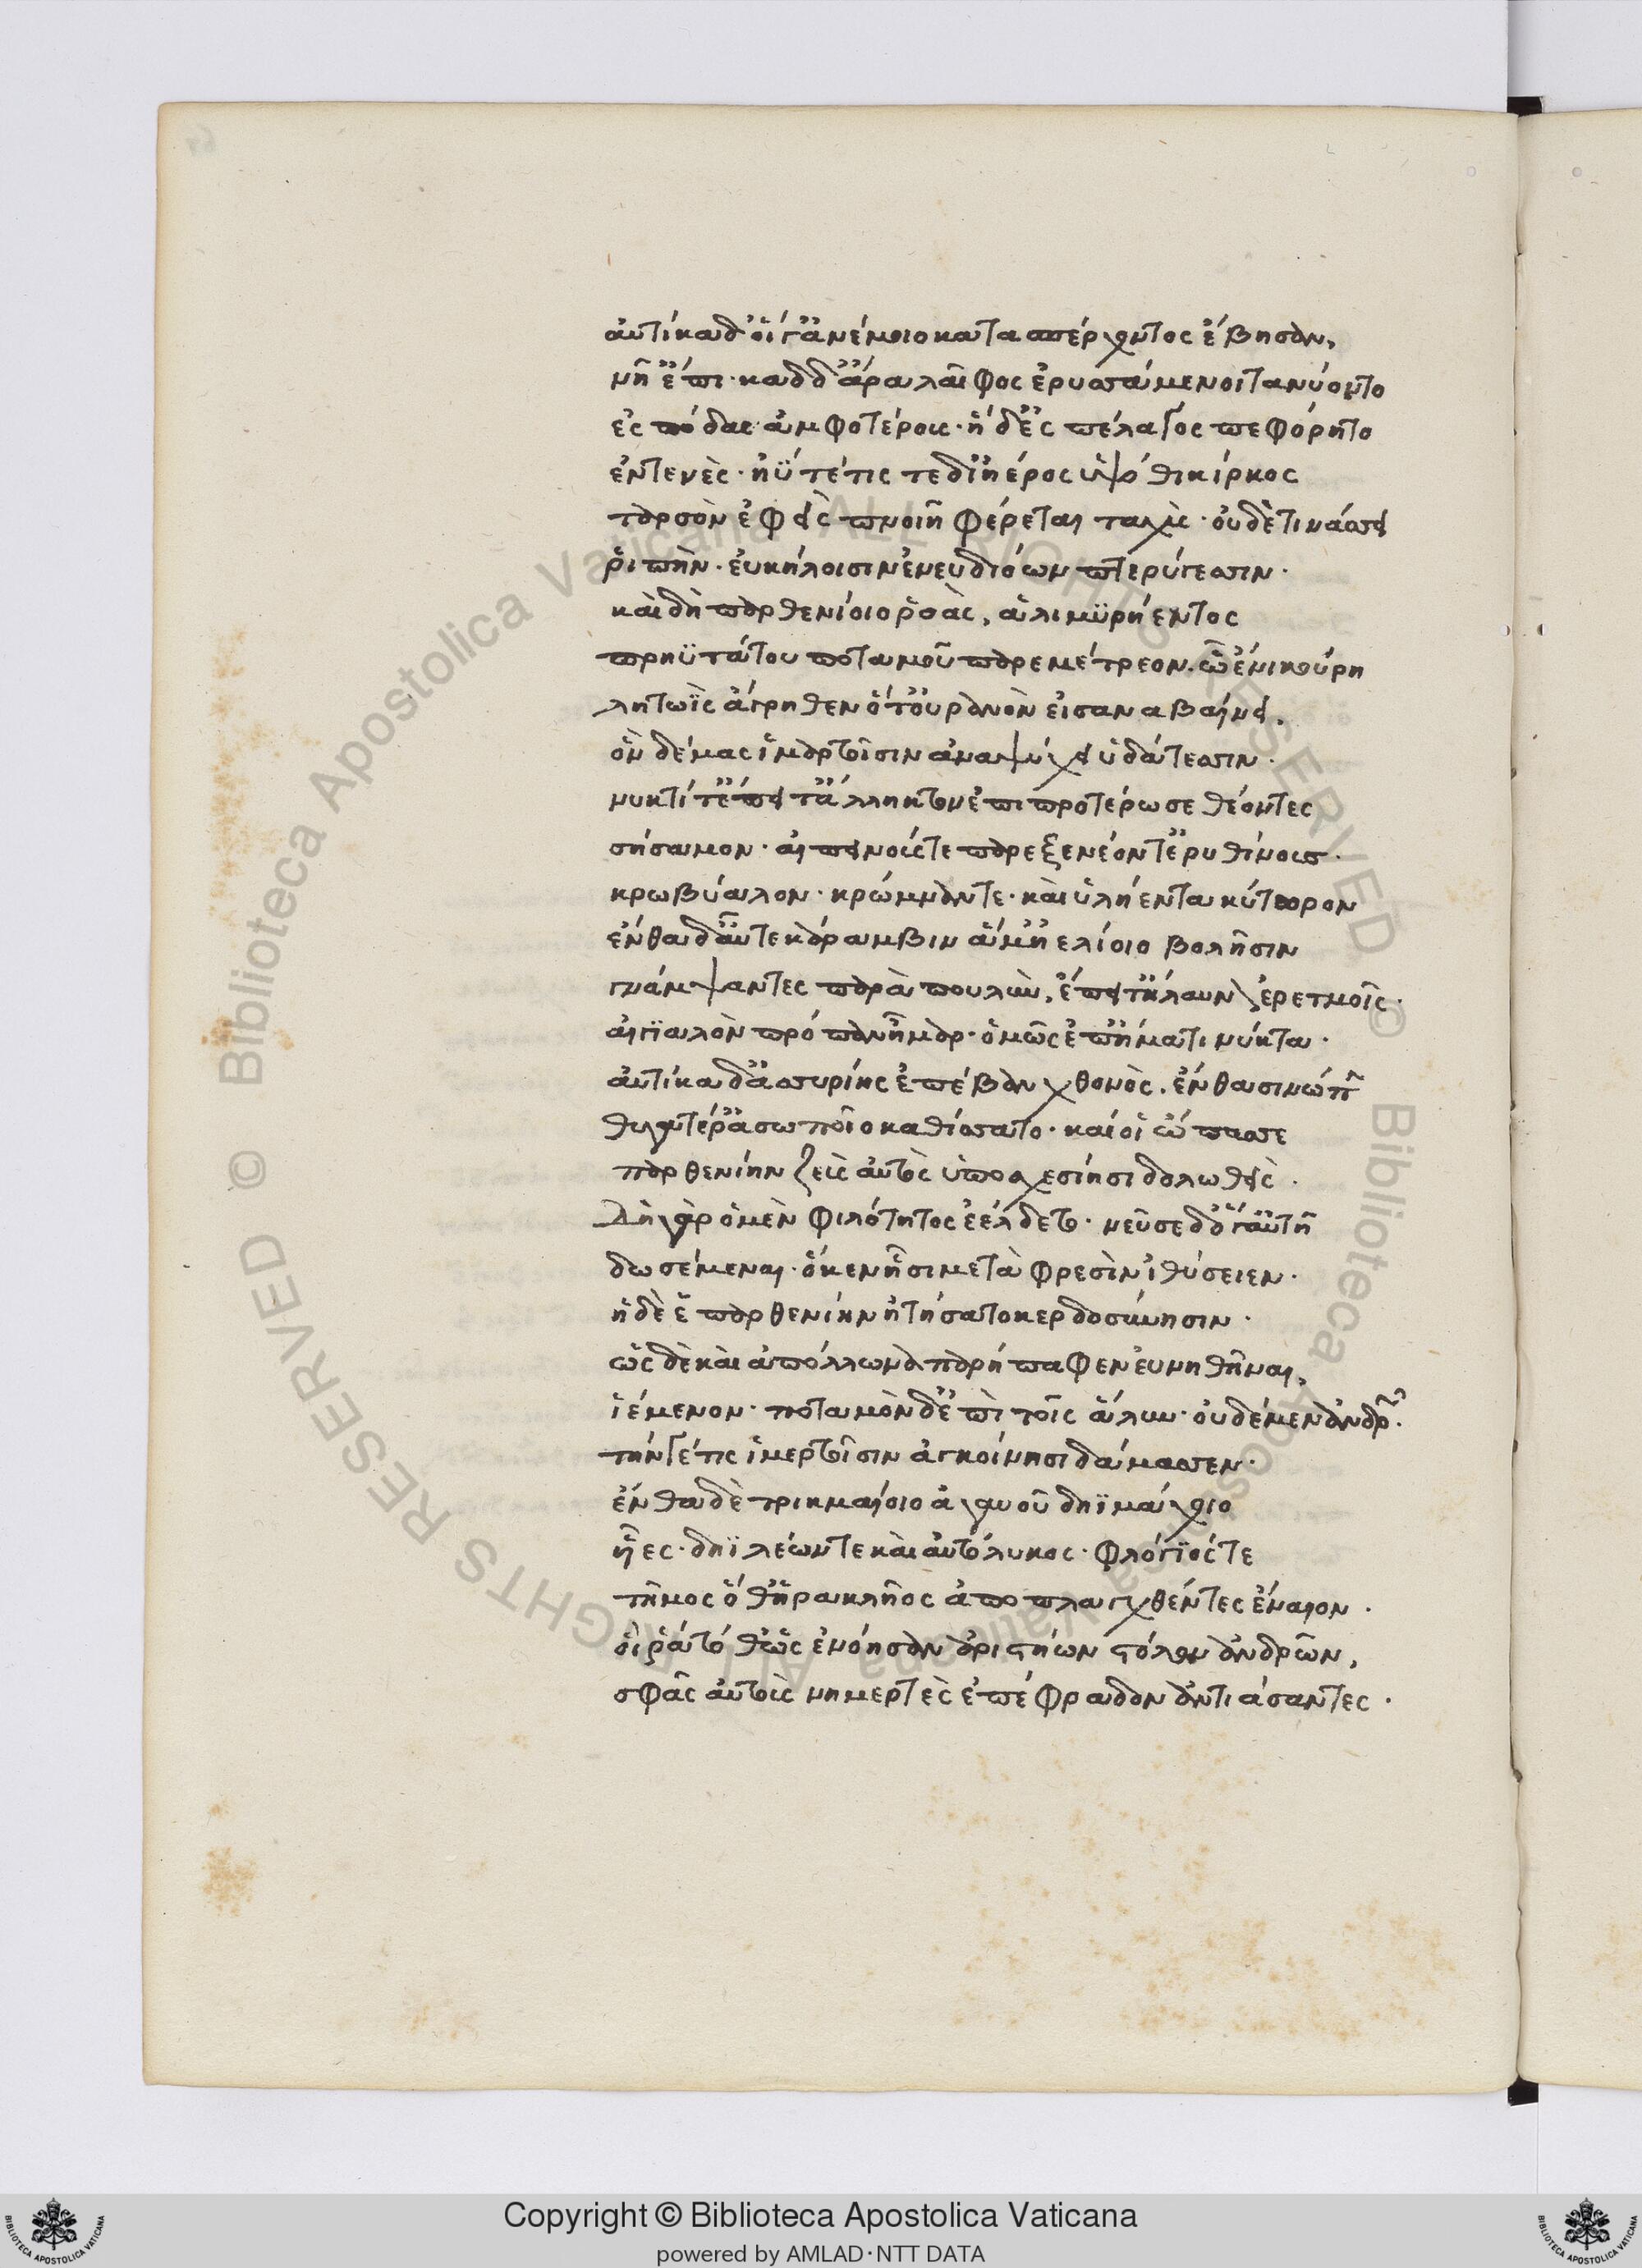 αὐτίκα δ' οἵ γ' ἀνέμοιο κατασπέρχοντος ἔβησαν,
νηῒ ἔπι· καδδ' ἄρα λαῖφος ἐρυσσάμενοι τανύοντο
ἐς πόδας ἀμφοτέρους· ἡ δ' ἐς πέλαγος πεφόρητο
ἐντενὲς· ἠΰτε τίς τε δι' ἠέρος ὑψόθι κίρκος
ταρσὸν ἐφεὶς πνοιῇ φέρεται ταχὺς· οὐδὲ τινάσσει
ῥιπὴν· εὐκήλοισιν ἐνευδιόων πτερύγεσσιν·
καὶ δὴ παρθενίοιο ῥοὰς, ἁλιμυρήεντος
πρηϋτάτου ποταμοῦ παρεμέτρεον. ᾧ ἔνι κούρη
λητωῒς ἄγρηθεν ὅτ' οὐρανὸν εἰσαναβαίνει.
ὃν δέμας ἱμερτοῖσιν ἀναψύχει ὑδάτεσσιν·
νυκτί τ' ἔπειτ' ἄλληκτον ἐπιπροτέρωσε θέοντες
σήσαμον· αἰπεινούς τε παρεξενέοντ' ἐρυθίνους·
κρωβύαλον· κρώμναν τε· καὶ ὑλήεντα κύτωρον
ἔνθα δ' αὖτε κάραμβιν ἅμ' ἠελίοιο βολῇσιν
γνάμψαντες παρὰ πουλὺν, ἔπειτ' ἤλαυνον ἐρετμοῖς·
αἰγιαλὸν πρόπαν ἦμαρ· ὁμῶς ἐπ' ἤματι νύκτα·
αὐτίκα δ' ἀσσυρίης ἐπέβαν χθονὸς. ἔνθα σινώπην
θυγατέρ' ἀσωποῖο καθίσσατο· καί οἱ ὤπασσε
παρθενίην ζεὺς αὐτὸς ὑποσχεσίῃσι δολωθεὶς.
δὴ γὰρ ὁ μὲν φιλότητος ἐέλδετο· νεῦσε δ' ὅγ' αὐτῇ
δωσέμεναι· ὅ κεν ᾗσι μετὰ φρεσὶν ἰθύσειεν·
ἡ δὲ ἓ παρθενίην ᾐτήσατο κερδοσύνῃσιν·
ὣς δὲ καὶ ἀπόλλωνα παρήπαφεν εὐνηθῆναι,
ἱέμενον· ποταμὸν δ' ἐπὶ τοῖς ἅλυν· οὐδέ μεν ἀνδρῶν.
τήν γέ τις ἱμερτοῖσιν ἀγκοίνῃσι δάμασσεν·
ἔνθα δὲ τρικκαίοιο ἀγαυοῦ δηϊμάχοιο
ἦες· δηϊλέων τε καὶ αὐτόλυκος· φλογίος τε
τῆμος ὅθ' ἡρακλῆος ἀποπλαγχθέντες ἔναιον·
οἵ ῥα τόθ' ὡς ἐνόησαν ἀριστήων στόλον ἀνδρῶν,
σφᾶς αὐτοὺς νημερτὲς ἐπέφραδον ἀντιάσαντες·
Copyright © Biblioteca Apostolica Vaticana
powered by AMLAD·NTT DATA